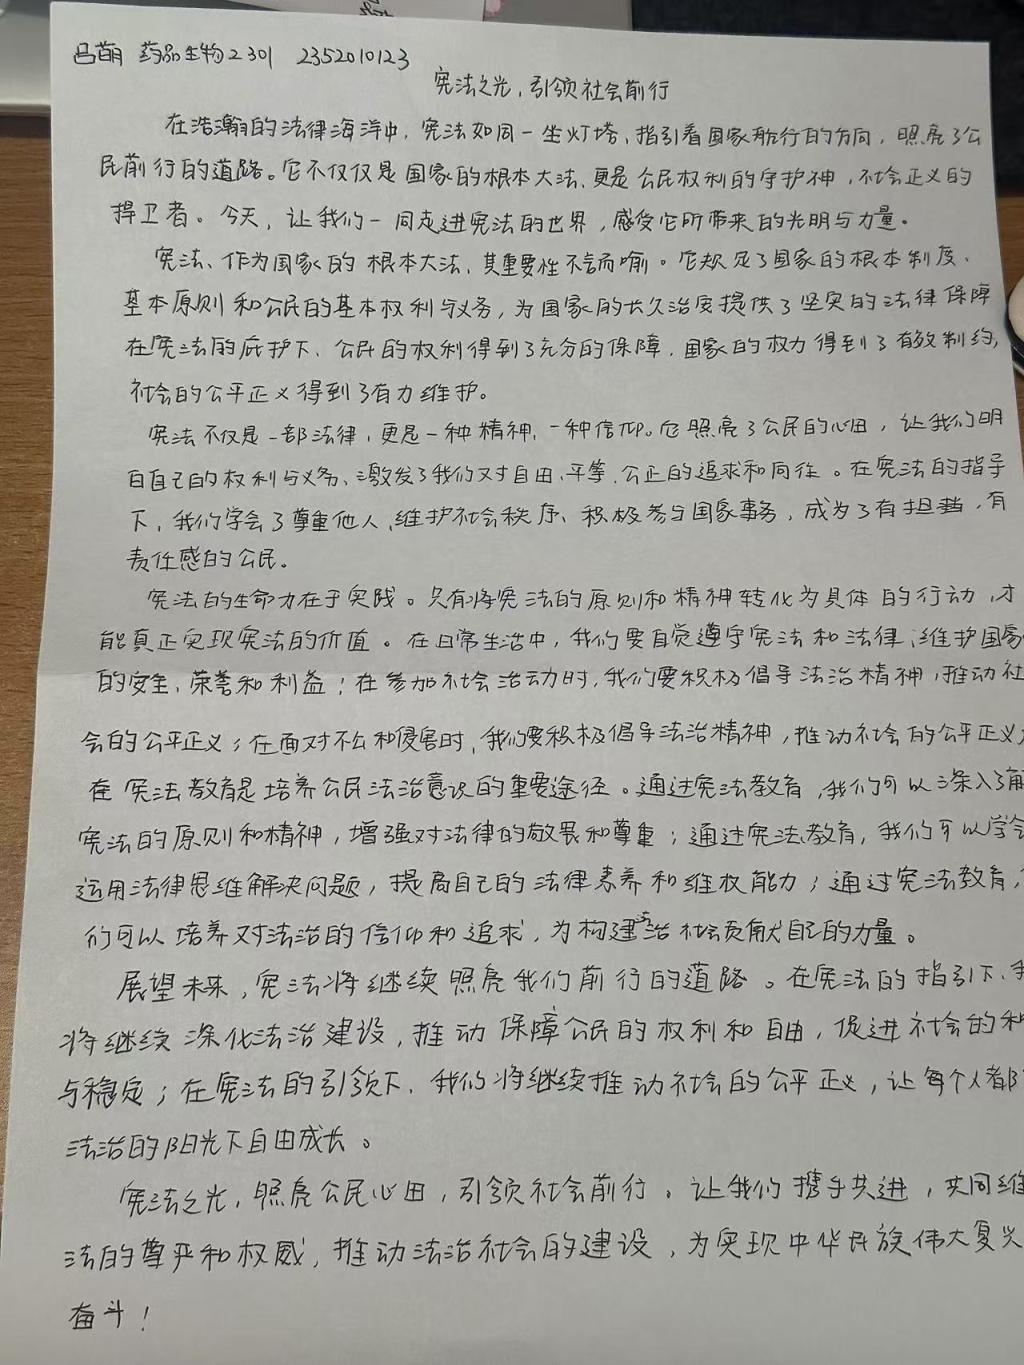 吕萌 药品生物2301 2352010123
宪法之光，引领社会前行
在浩瀚的法律海洋中，宪法如同一坐灯塔、指引着国家航行的方向，照亮了公
民前行的道路。它不仅仅是国家的根本大法、更是公民权利的守护神，社会正义的
捍卫者。今天，让我们一同走进宪法的世界，感受它所带来的光明与力量。
宪法、作为国家的根本大法、其重要性不言而喻。它规定了国家的根本制度、
基本原则和公民的基本权利与义务，为国家的长久治安提供了坚实的法律保障
在宪法的庇护下、公民的权利得到了充分的保障，国家的权力得到了有效制约，
社会的公平正义得到了有力维护。
宪法不仅是一部法律，更是一种精神、一种信仰。它照亮了公民的心田，让我们明
白自己的权利与义务、激发了我们对自由、平等、公正的追求和向往。在宪法的指导
下，我们学会了尊重他人、维护社会秩序、积极参与国家事务，成为了有担当，有
责任感的公民。
宪法的生命力在于实践。只有将宪法的原则和精神转化为具体的行动，才
能真正实现宪法的价值。在日常生活中，我们要自觉遵守宪法和法律、维护国家
的安全、荣誉和利益；在参加社会活动时，我们要积极倡导法治精神，推动社
会的公平正义；在面对不公和侵害时，我们要积极倡导法治精神，推动社会的公平正义
在宪法教育是培养公民法治意识的重要途径。通过宪法教育，我们可以深入了解
宪法的原则和精神，增强对法律的敬畏和尊重；通过宪法教育，我们可以学会
运用法律思维解决问题，提高自己的法律素养和维权能力；通过宪法教育，
们可以培养对法治的信仰和追求，为构建法治社会贡献自己的力量。
展望未来，宪法将继续照亮我们前行的道路。在宪法的指引下、我
将继续深化法治建设，推动保障公民的权利和自由，促进社会的和
与稳定；在宪法的引领下、我们将继续推动社会的公平正义，让每个人都
法治的阳光下自由成长。
宪法之光，照亮公民心田，引领社会前行。让我们携手共进，共同维
法的尊严和权威，推动法治社会的建设，为实现中华民族伟大复兴
奋斗！